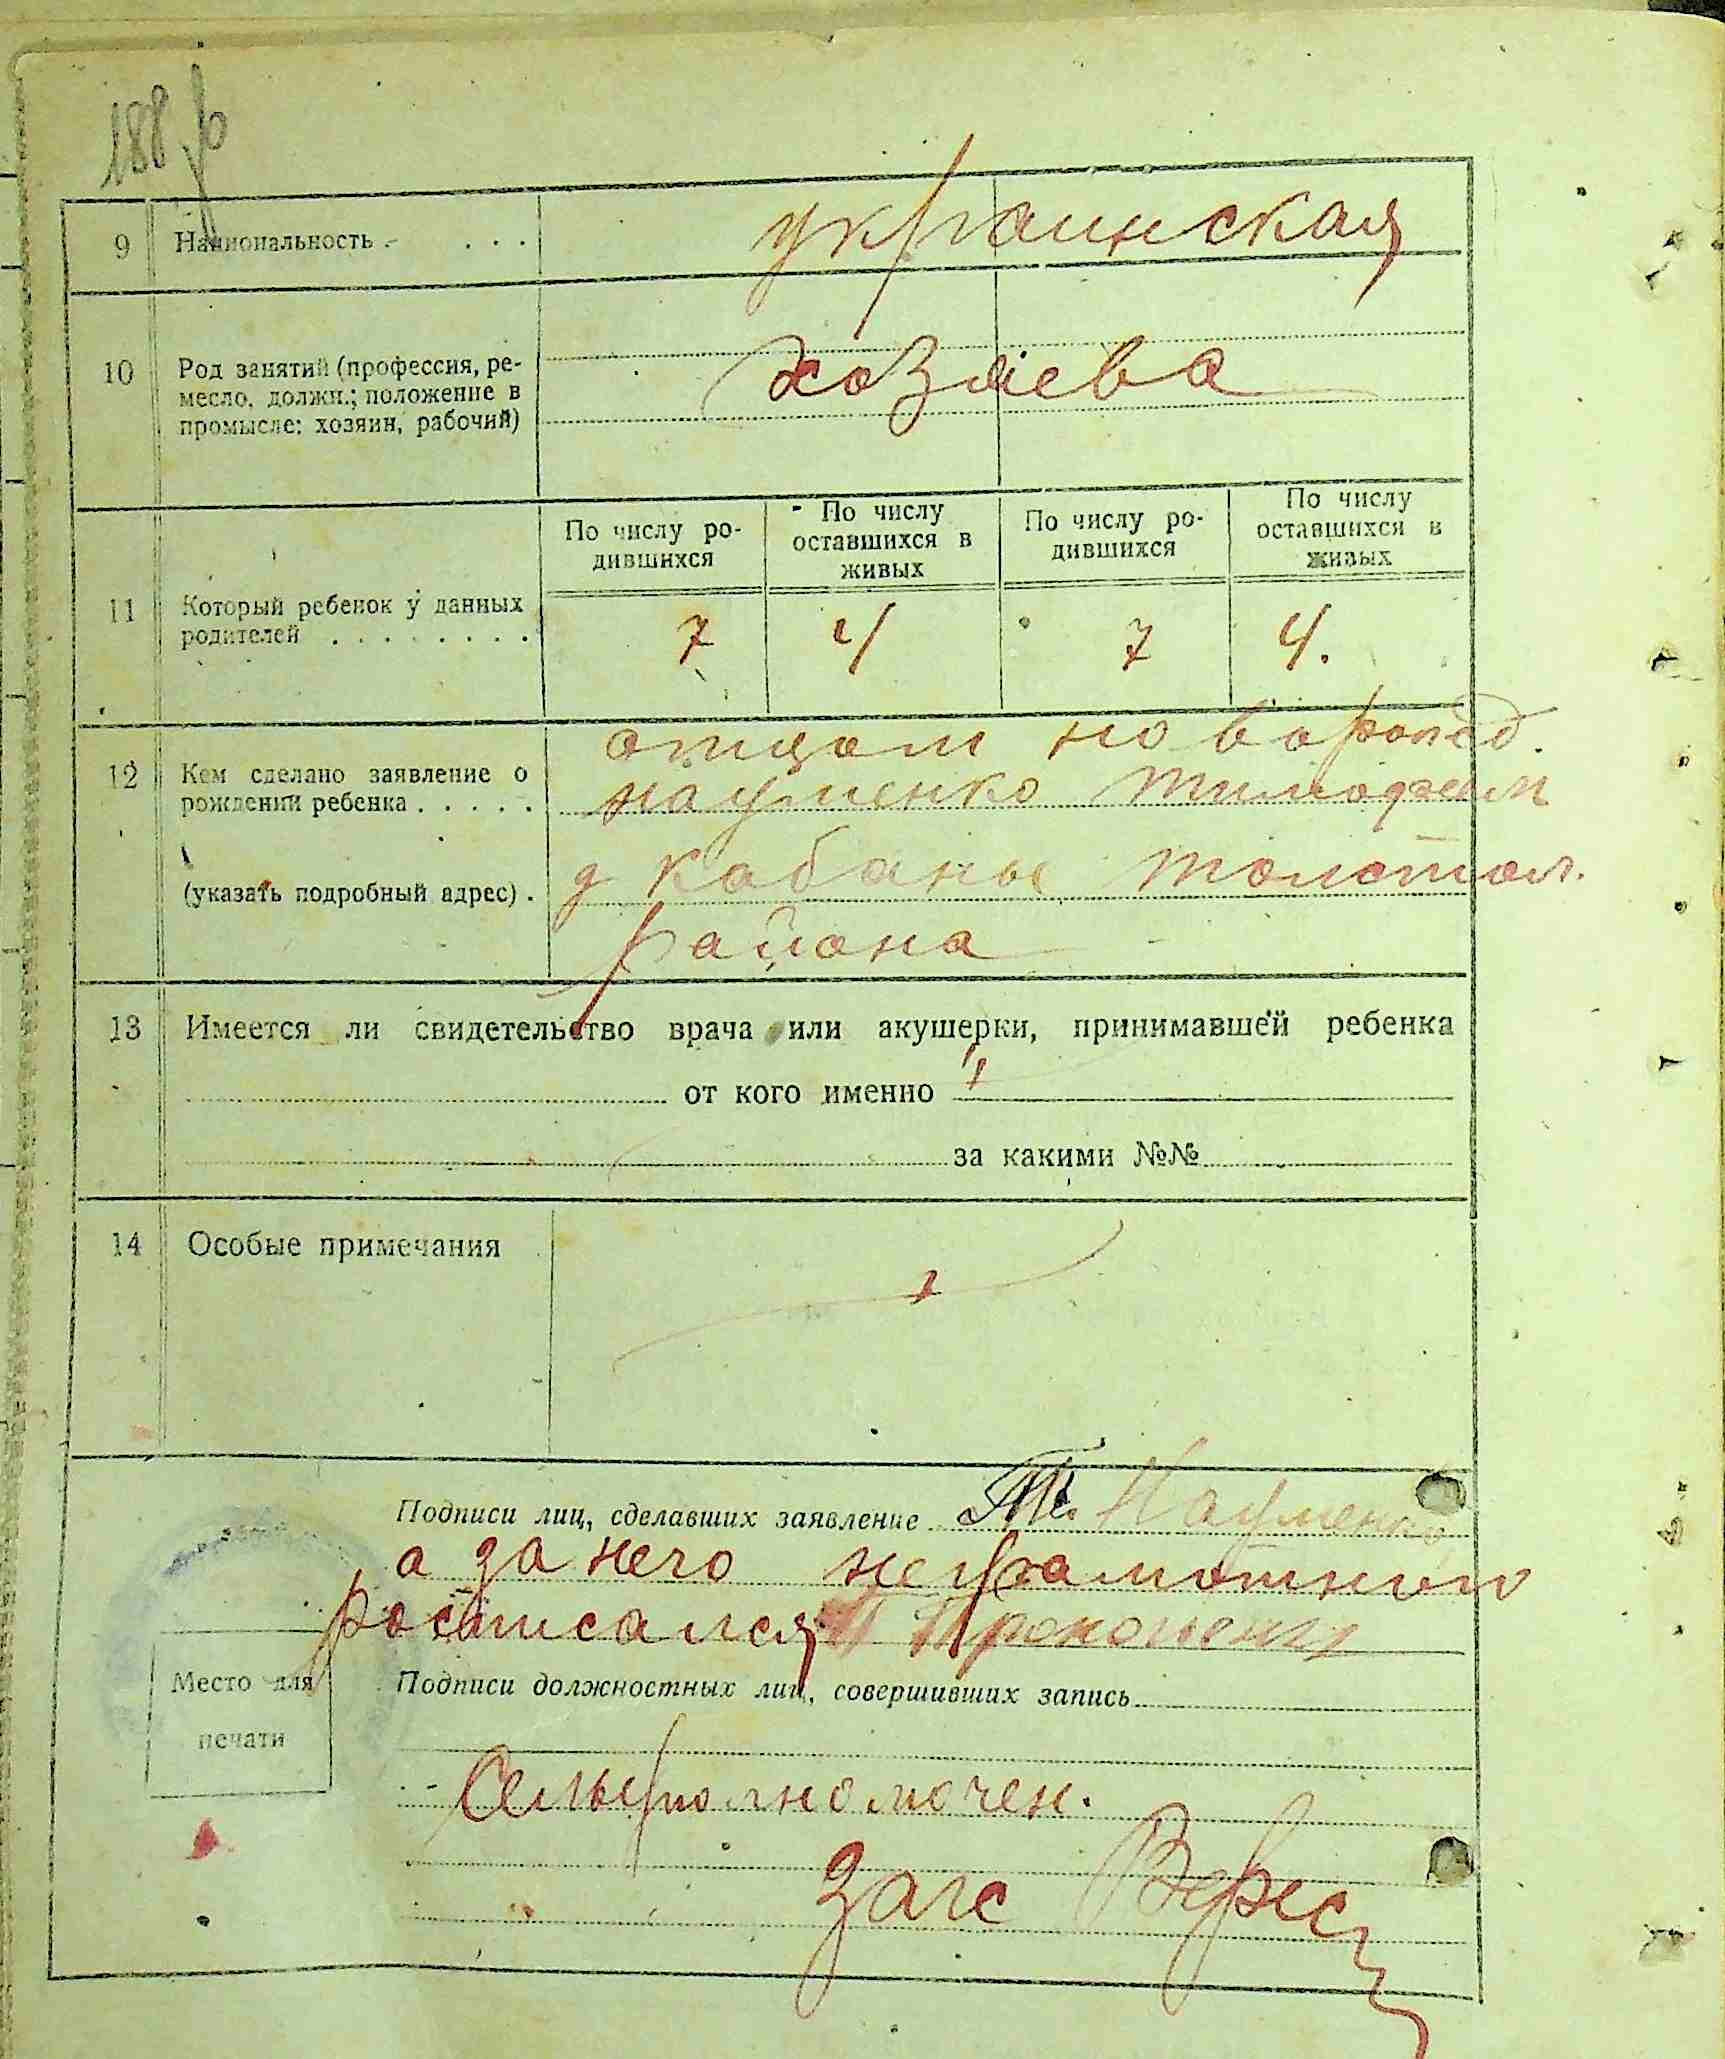 188 р
9 Национальность . . . . украинская
10 Род занятий (профессия, ре-
месло, должн.; положение в
промысле: хозяин, рабочий)
хозяева
11 Который ребенок у данных
родителей . . . . . . . .
По числу ро-
дившихся
По числу
оставшихся в
живых
По числу ро-
дившихся
По числу
оставшихся в
живых
7 4 7 4.
12 Кем сделано заявление о
рождении ребенка . . . . .
(указать подробный адрес) .
отцом новорожд.
Науменко Тимофеем
д Кабанье
района
13 Имеется ли свидетельство врача или акушерки, принимавшей ребенка
от кого именно
за какими №№
14 Особые примечания
Подписи лиц, сделавших заявление Т. Науменко
а за него неграмотного
росписался
Место для
печати
Подписи должностных лиц, совершивших запись
Сельуполномочен.
Загс Верес